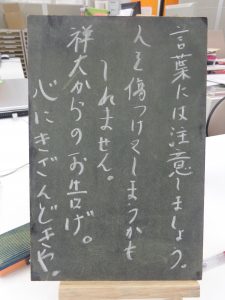 言葉には注意しましょう。
人を傷つけてしまうかも
しれません。
祥太からのお告げ。
心にきざんどきや。